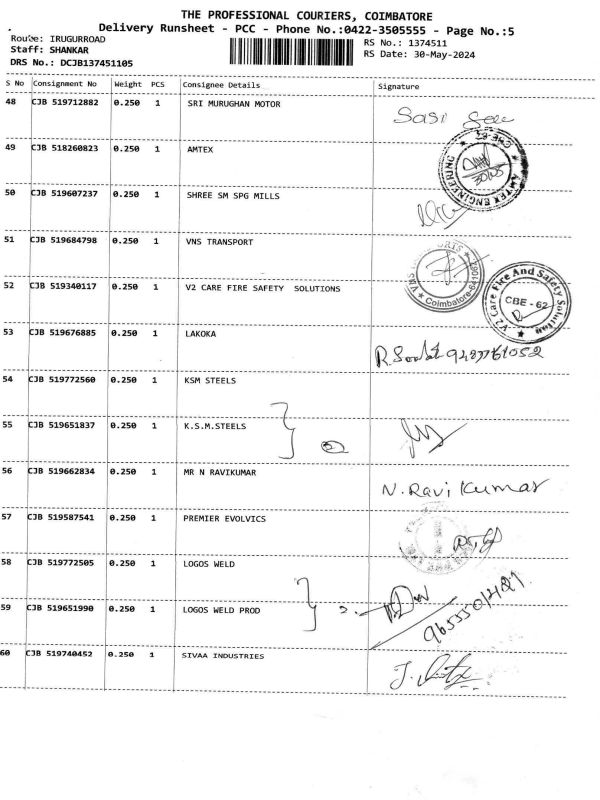 THE PROFESSIONAL COURIERS, COIMBATORE
Delivery Runsheet - PCC - Phone No.:0422-3505555 - Page No.:5
Route: IRUGURROAD
RS No.: 1374511
Staff: SHANKAR
RS Date: 30-May-2024
DRS No.: DCJB137451105
S No Consignment No Weight PCS Consignee Details Signature
48 CJB 519712882 0.250 1 SRI MURUGHAN MOTOR Sasi
49 CJB 518260823 0.250 1 AMTEX
AMTEX ENGINEERING
50 CJB 519607237 0.250 1 SHREE SM SPG MILLS
51 CJB 519684798 0.250 1 VNS TRANSPORT
Coimbatore
52 CJB 519340117 0.250 1 V2 CARE FIRE SAFETY SOLUTIONS
V2 Care Fire And Safety Solution
CBE - 62
53 CJB 519676885 0.250 1 LAKOKA
54 CJB 519772560 0.250 1 KSM STEELS
55 CJB 519651837 0.250 1 K.S.M.STEELS
56 CJB 519662834 0.250 1 MR N RAVIKUMAR N. Ravi Kumar
57 CJB 519587541 0.250 1 PREMIER EVOLVICS
58 CJB 519772505 0.250 1 LOGOS WELD
59 CJB 519651990 0.250 1 LOGOS WELD PROD
60 CJB 519740452 0.250 1 SIVAA INDUSTRIES